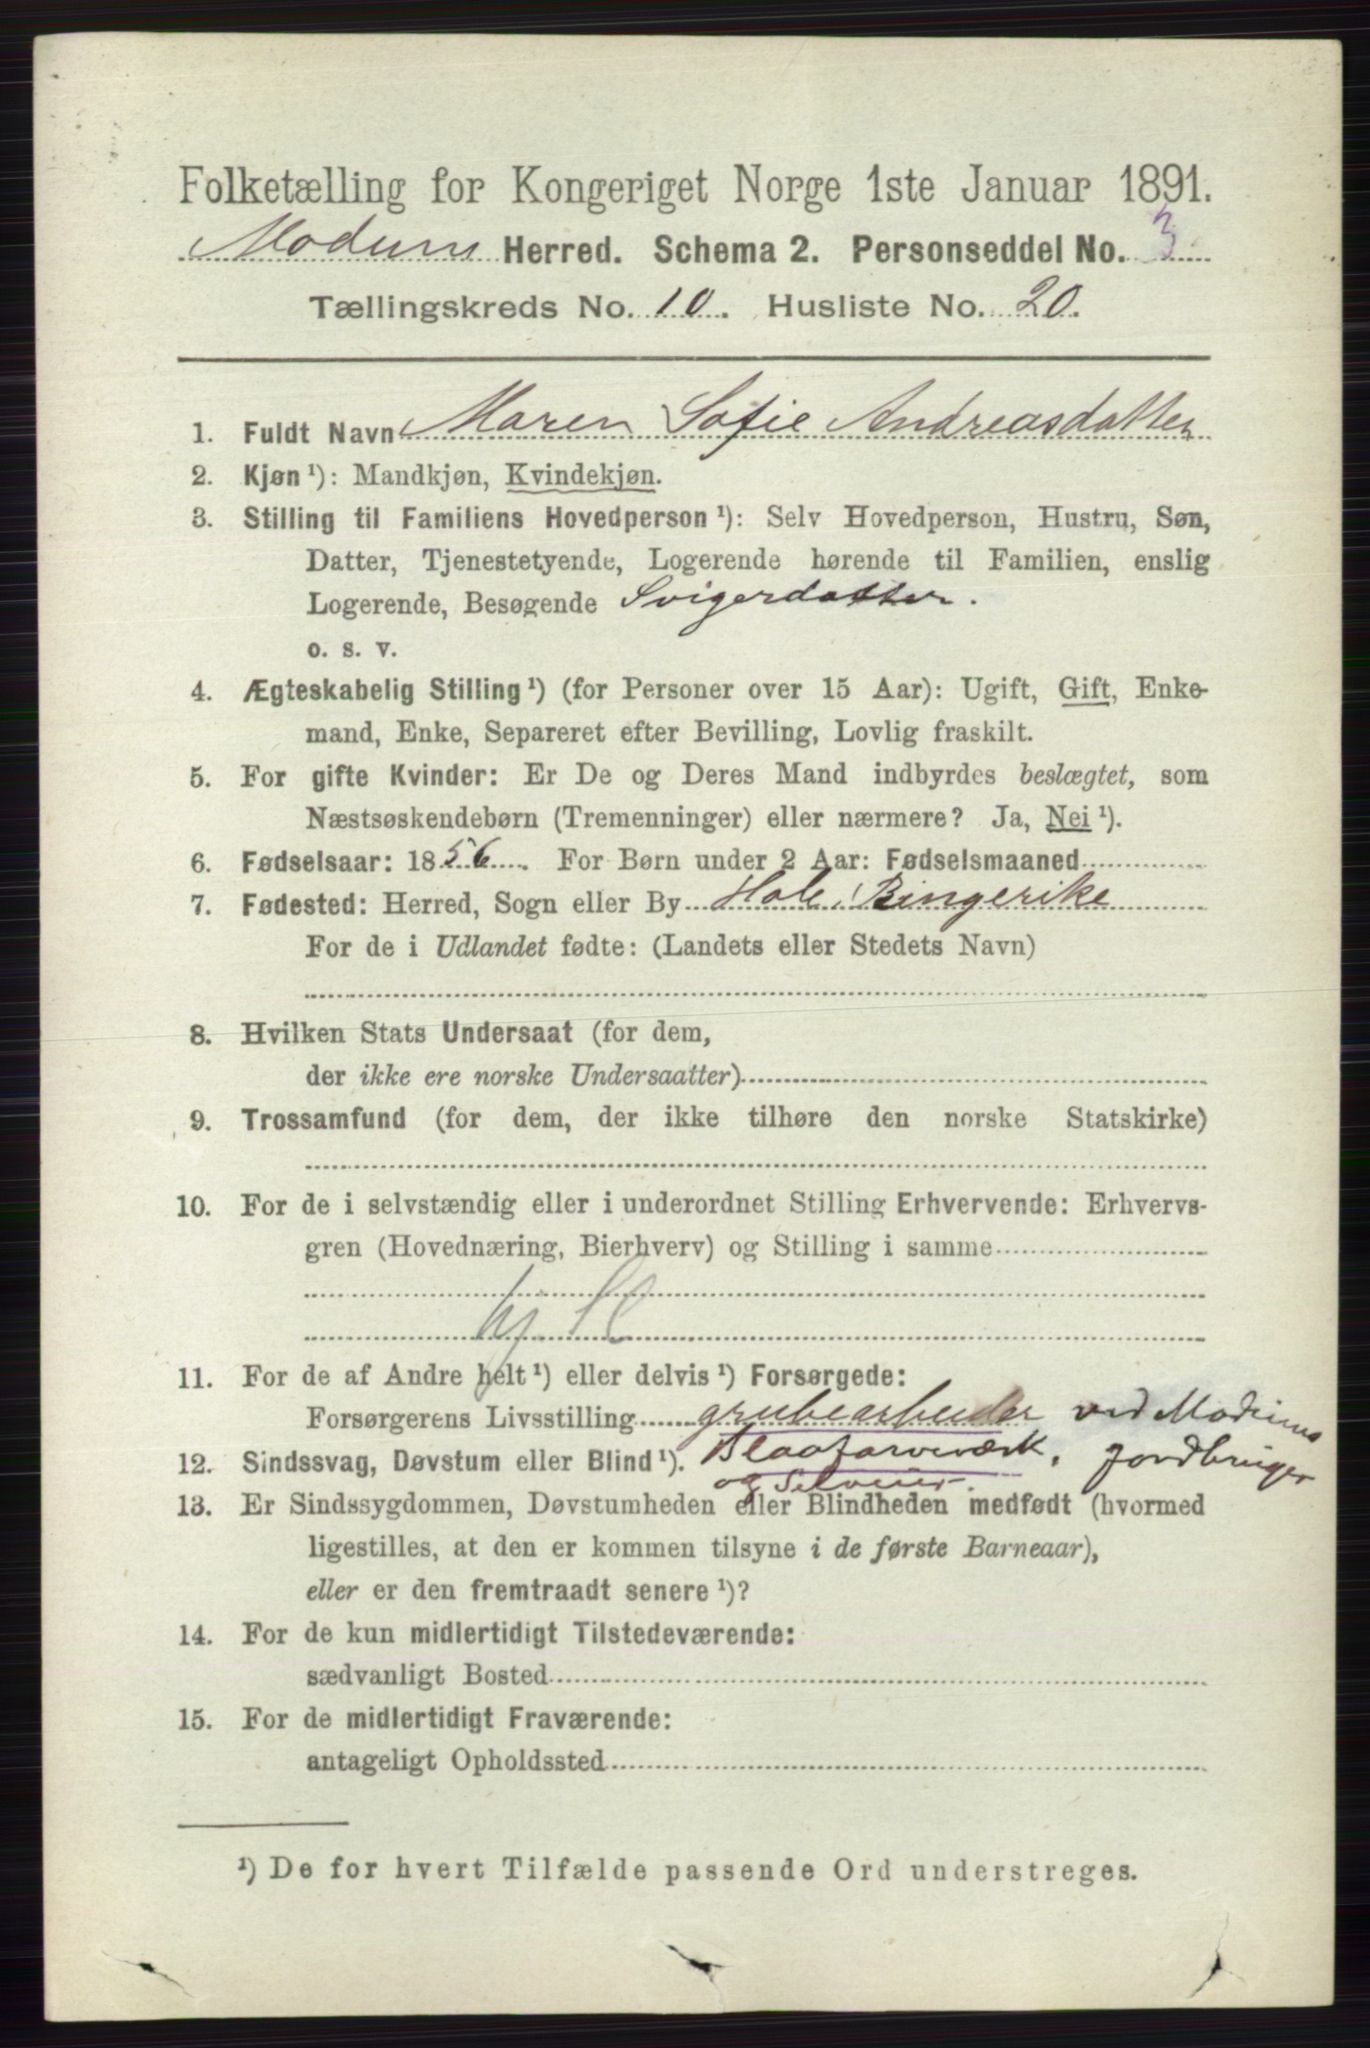 Folketælling for Kongeriget Norge 1ste Januar 1891.
Modum Herred. Schema 2. Personseddel No. 3
Tællingskreds No. 10. Husliste No. 20.
1. Fuldt Navn Maren Sofie Andreasdatter
2. Kjøn ¹): Mandkjøn, Kvindekjøn.
3. Stilling til Familiens Hovedperson ¹): Selv Hovedperson, Hustru, Søn,
Datter, Tjenestetyende, Logerende hørende til Familien, enslig
Logerende, Besøgende Svigerdatter.
o. s. v.
4. Ægteskabelig Stilling ¹) (for Personer over 15 Aar): Ugift, Gift, Enke-
mand, Enke, Separeret efter Bevilling, Lovlig fraskilt.
5. For gifte Kvinder: Er De og Deres Mand indbyrdes beslægtet, som
Næstsøskendebørn (Tremenninger) eller nærmere? Ja, Nei ¹).
6. Fødselsaar: 1856. For Børn under 2 Aar: Fødselsmaaned
7. Fødested: Herred, Sogn eller By Hole, Ringerike
For de i Udlandet fødte: (Landets eller Stedets Navn)
8. Hvilken Stats Undersaat (for dem,
der ikke ere norske Undersaatter)
9. Trossamfund (for dem, der ikke tilhøre den norske Statskirke)
10. For de i selvstændig eller i underordnet Stilling Erhvervende: Erhvervs-
gren (Hovednæring, Bierhverv) og Stilling i samme
11. For de af Andre helt ¹) eller delvis ¹) Forsørgede:
Forsørgerens Livsstilling grubearbeider ved Modums
12. Sindssvag, Døvstum eller Blind ¹). Blaafarveværk, jordbruger
og Selveier.
13. Er Sindssygdommen, Døvstumheden eller Blindheden medfødt (hvormed
ligestilles, at den er kommen tilsyne i de første Barneaar),
eller er den fremtraadt senere ¹)?
14. For de kun midlertidigt Tilstedeværende:
sædvanligt Bosted
15. For de midlertidigt Fraværende:
antageligt Opholdssted
¹) De for hvert Tilfælde passende Ord understreges.